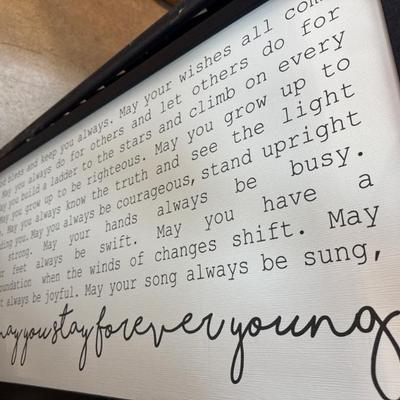 bless and keep you always. May your wishes all com
May you always do for others and let others do for
may you build a ladder to the stars and climb on every
May you grow up to be righteous. May you grow up to
May you always know the truth and see the light
ding you. May you always be courageous, stand upright
strong. May your hands always be busy.
feet always be swift. May you have a
oundation when the winds of changes shift. May
always be joyful. May your song always be sung,
may you stay forever young